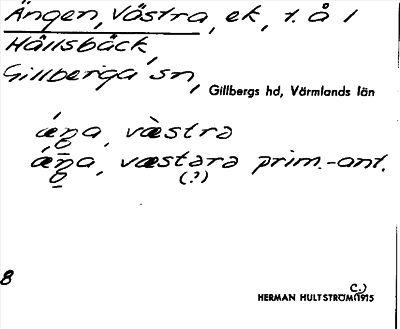 Ängen, Västra, ek, t. å 1
Hällsbäck,
Gillberga sn, Gillbergs hd, Värmlands län
ǽŋa, væ̀stra
ǽŋa, væstəra prim.-ant.
(?)
8
C.)
HERMAN HULTSTRÖM(1915